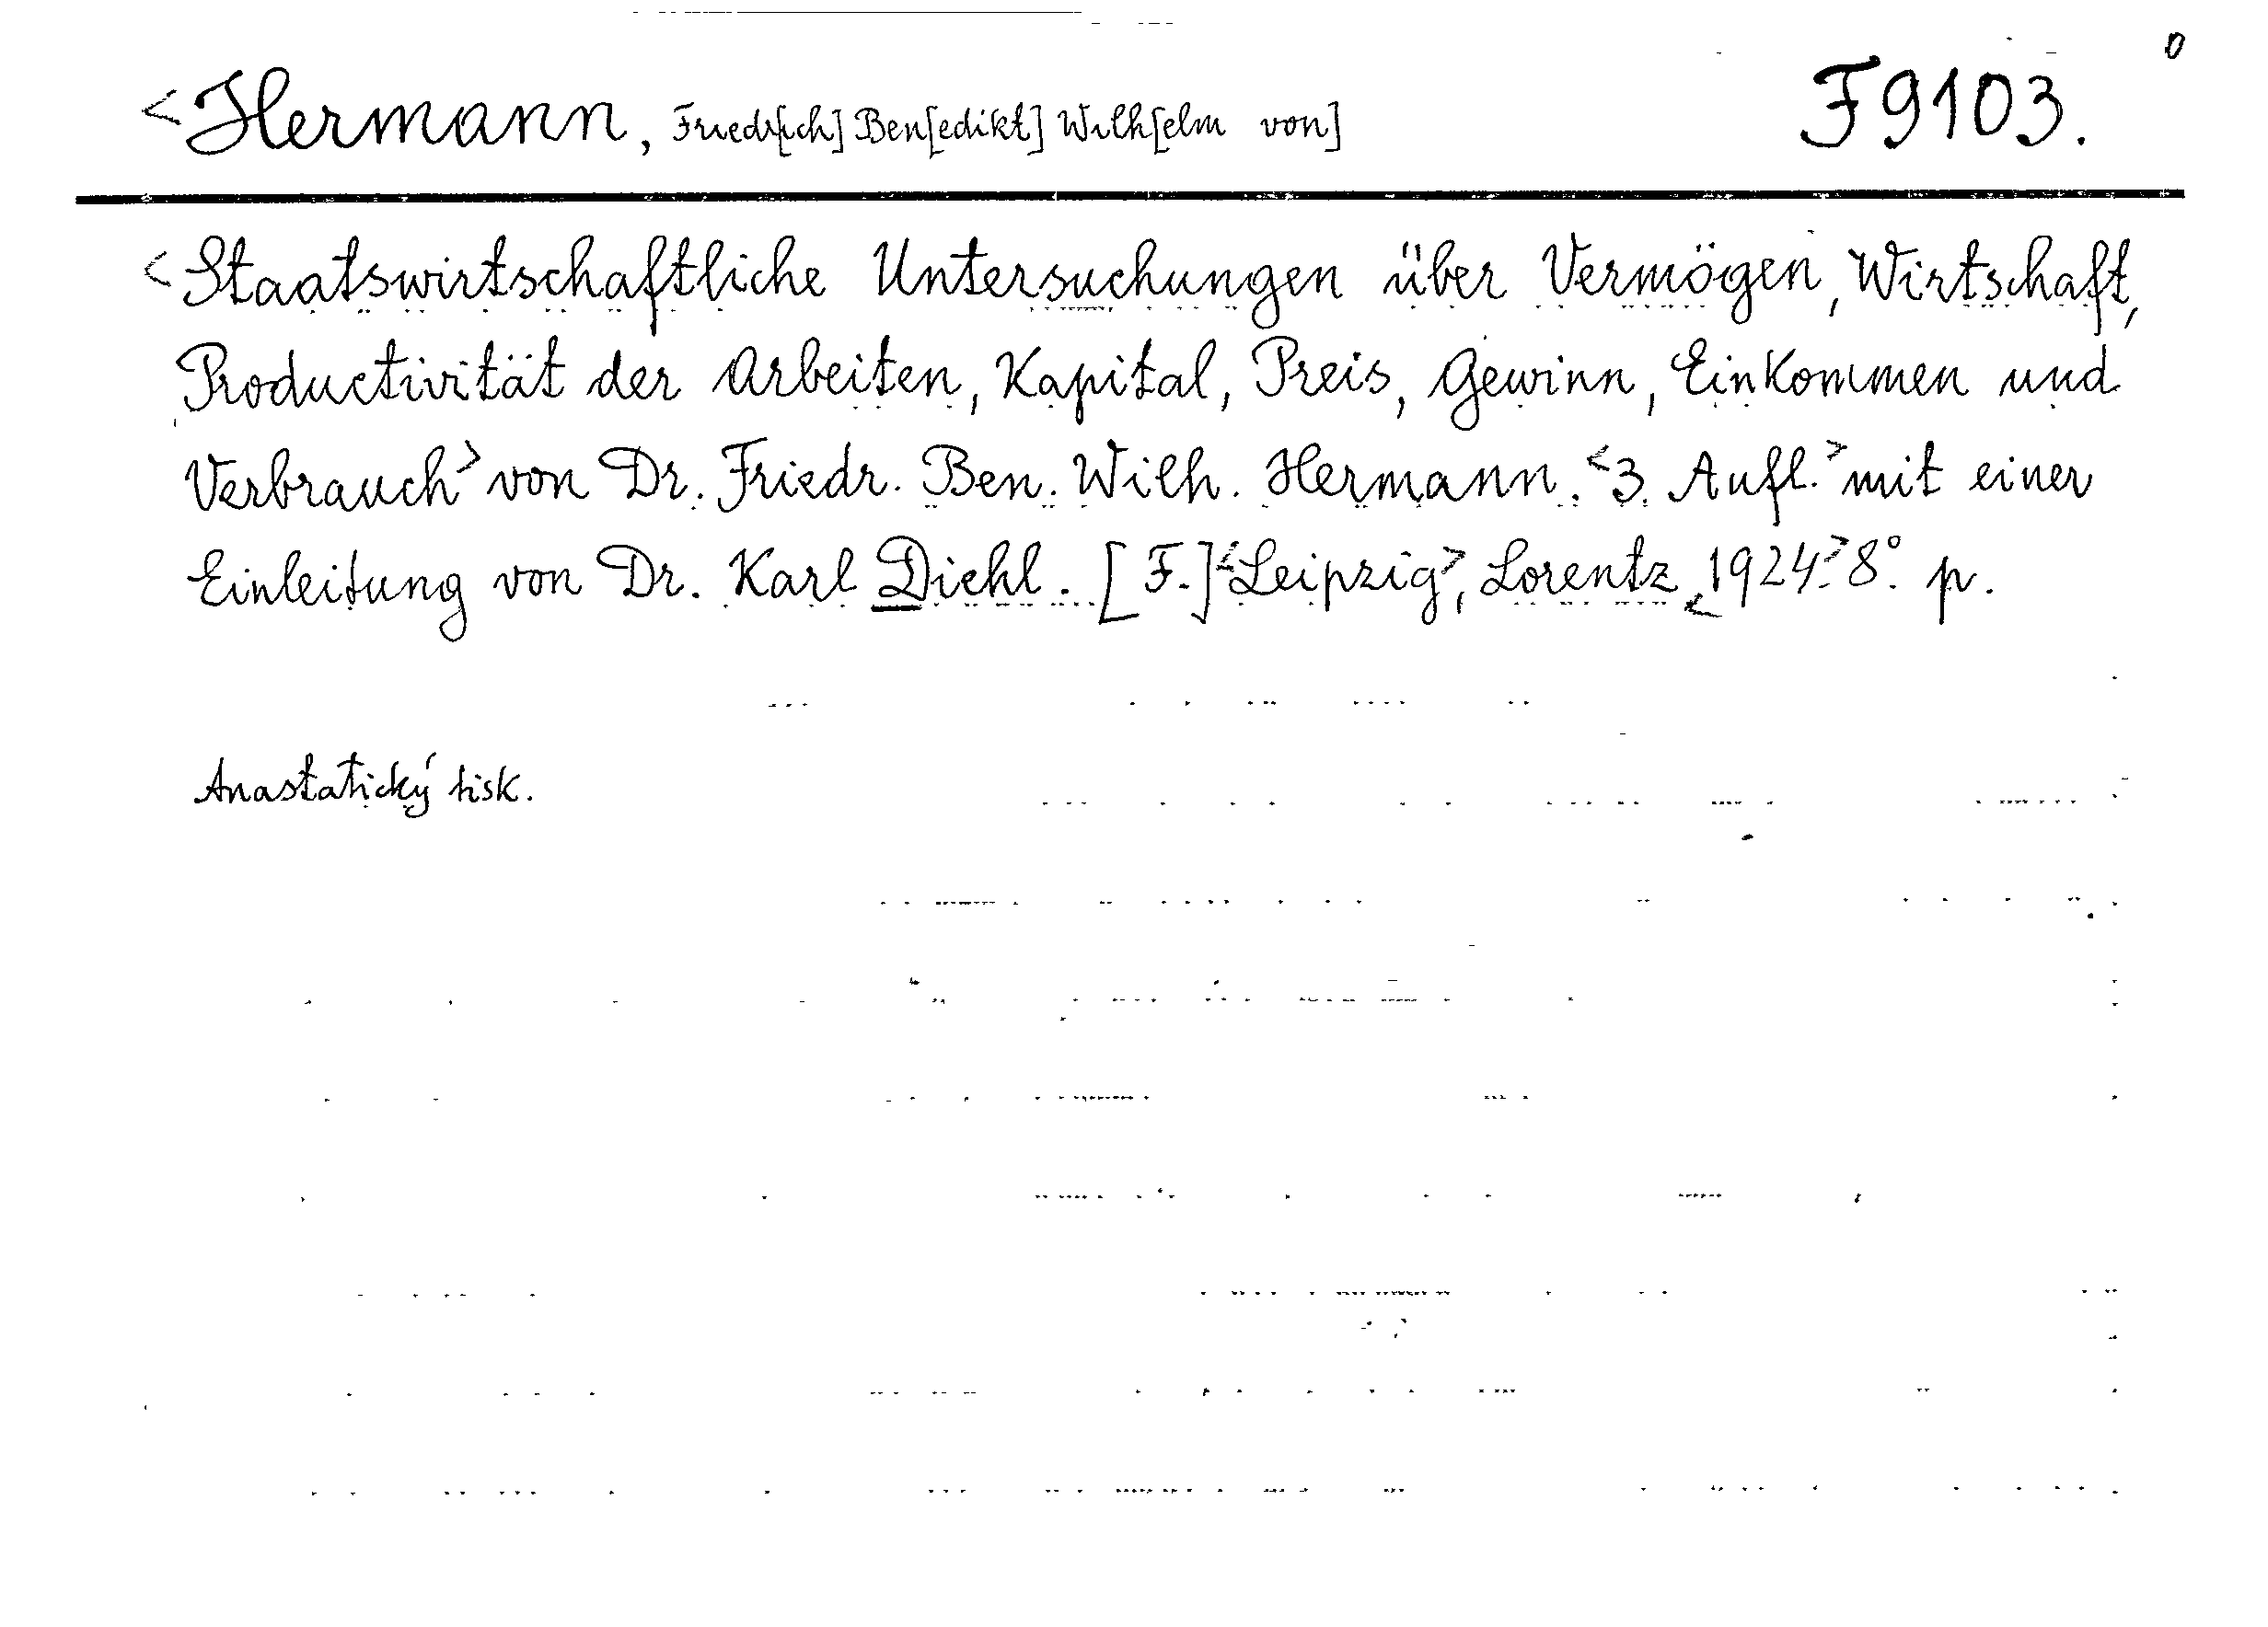 <Hermann, Friedr[ich] Ben[edikt] Wilh[elm von] F9103.
<Staatswirtschaftliche Untersuchungen über Vermögen, Wirtschaft,
Productivität der Arbeiten, Kapital, Preis, Gewinn, Einkommen und
Verbrauch> von Dr. Friedr. Ben. Wilh. Hermann. <3. Aufl.> mit einer
Einleitung von Dr. Karl Diehl. [F.] <Leipzig>, Lorentz <1924.> 8° p.
Anastatický tisk.